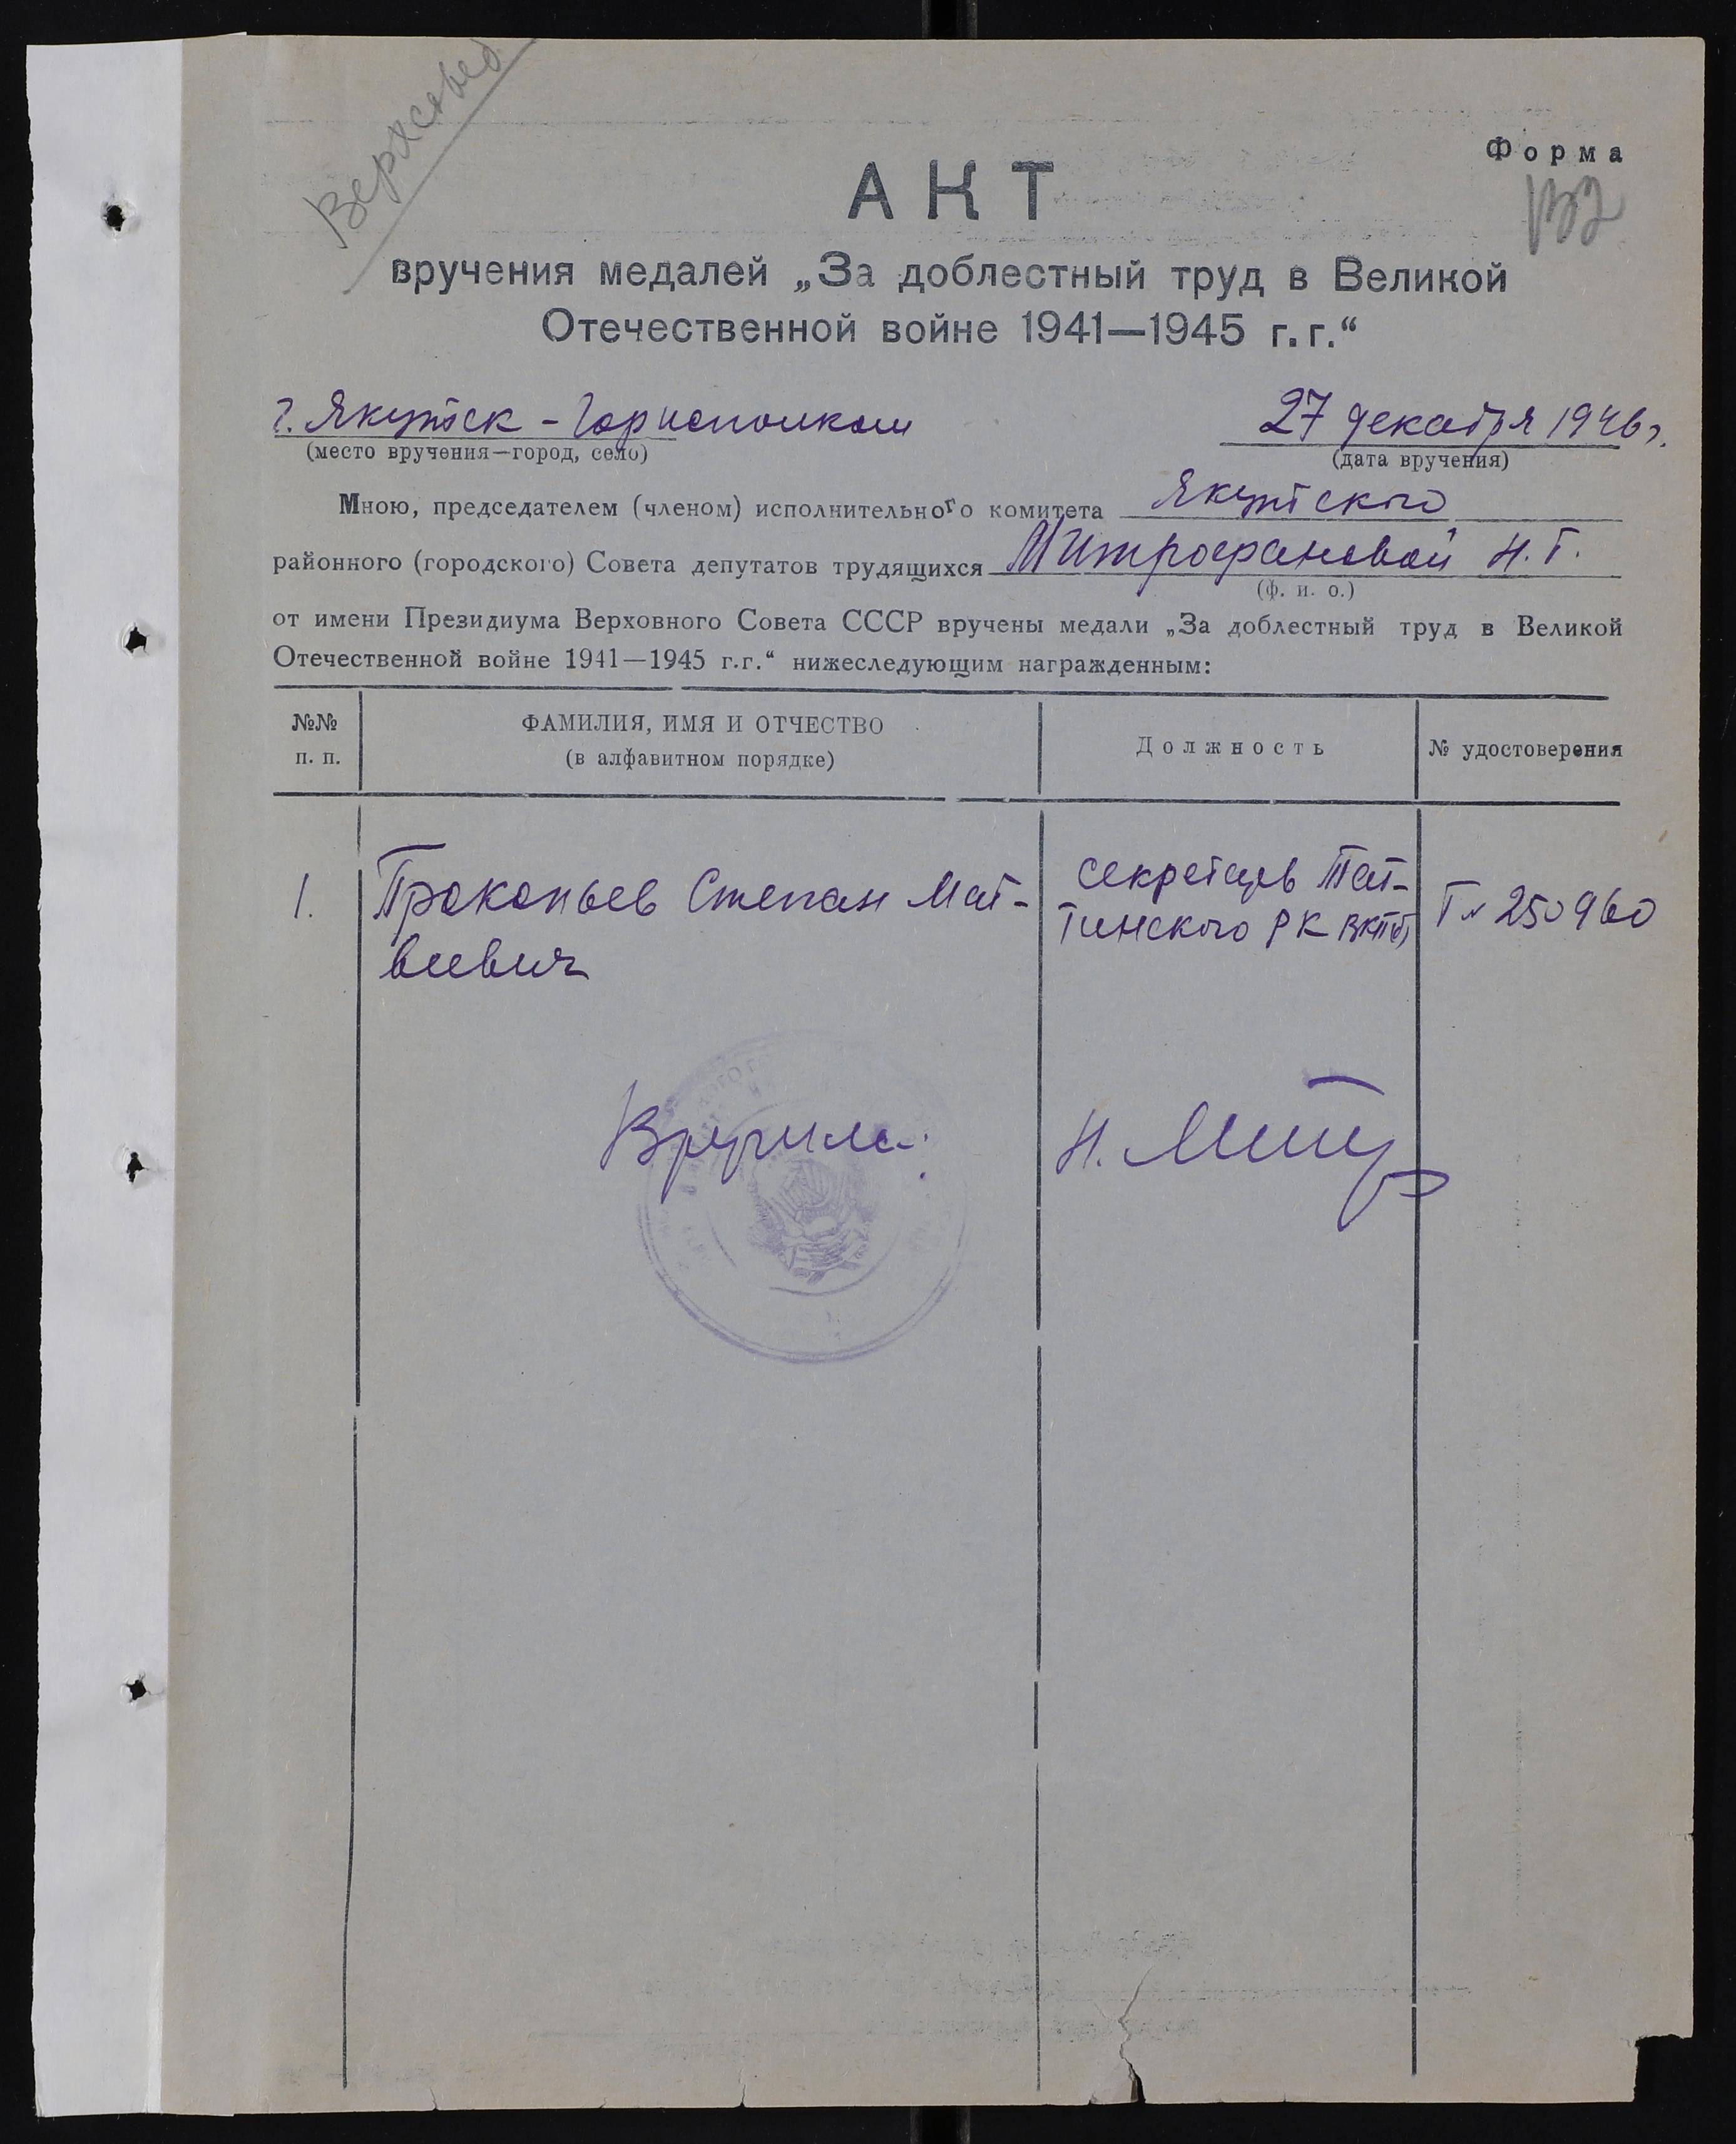 Верхсовед
Форма
АКТ
вручения медалей „За доблестный труд в Великой
Отечественной войне 1941—1945 г.г.“
г. Якутск - Горисполком
27 декабря 1946 г.
(место вручения—город, село)
(дата вручения)
Мною, председателем (членом) исполнительного комитета Якутского
районного (городского) Совета депутатов трудящихся Митрофановой Н. Г.
(ф. и. о.)
от имени Президиума Верховного Совета СССР вручены медали „За доблестный труд в Великой
Отечественной войне 1941—1945 г.г.“ нижеследующим награжденным:
№№ п. п.
ФАМИЛИЯ, ИМЯ И ОТЧЕСТВО
(в алфавитном порядке)
Должность
№ удостоверения
1. Прокопьев Степан Мат-
веевич
секретарь Тат-
тинского РК ВКП(б)
Г № 250960
Вручила: Н. Митр